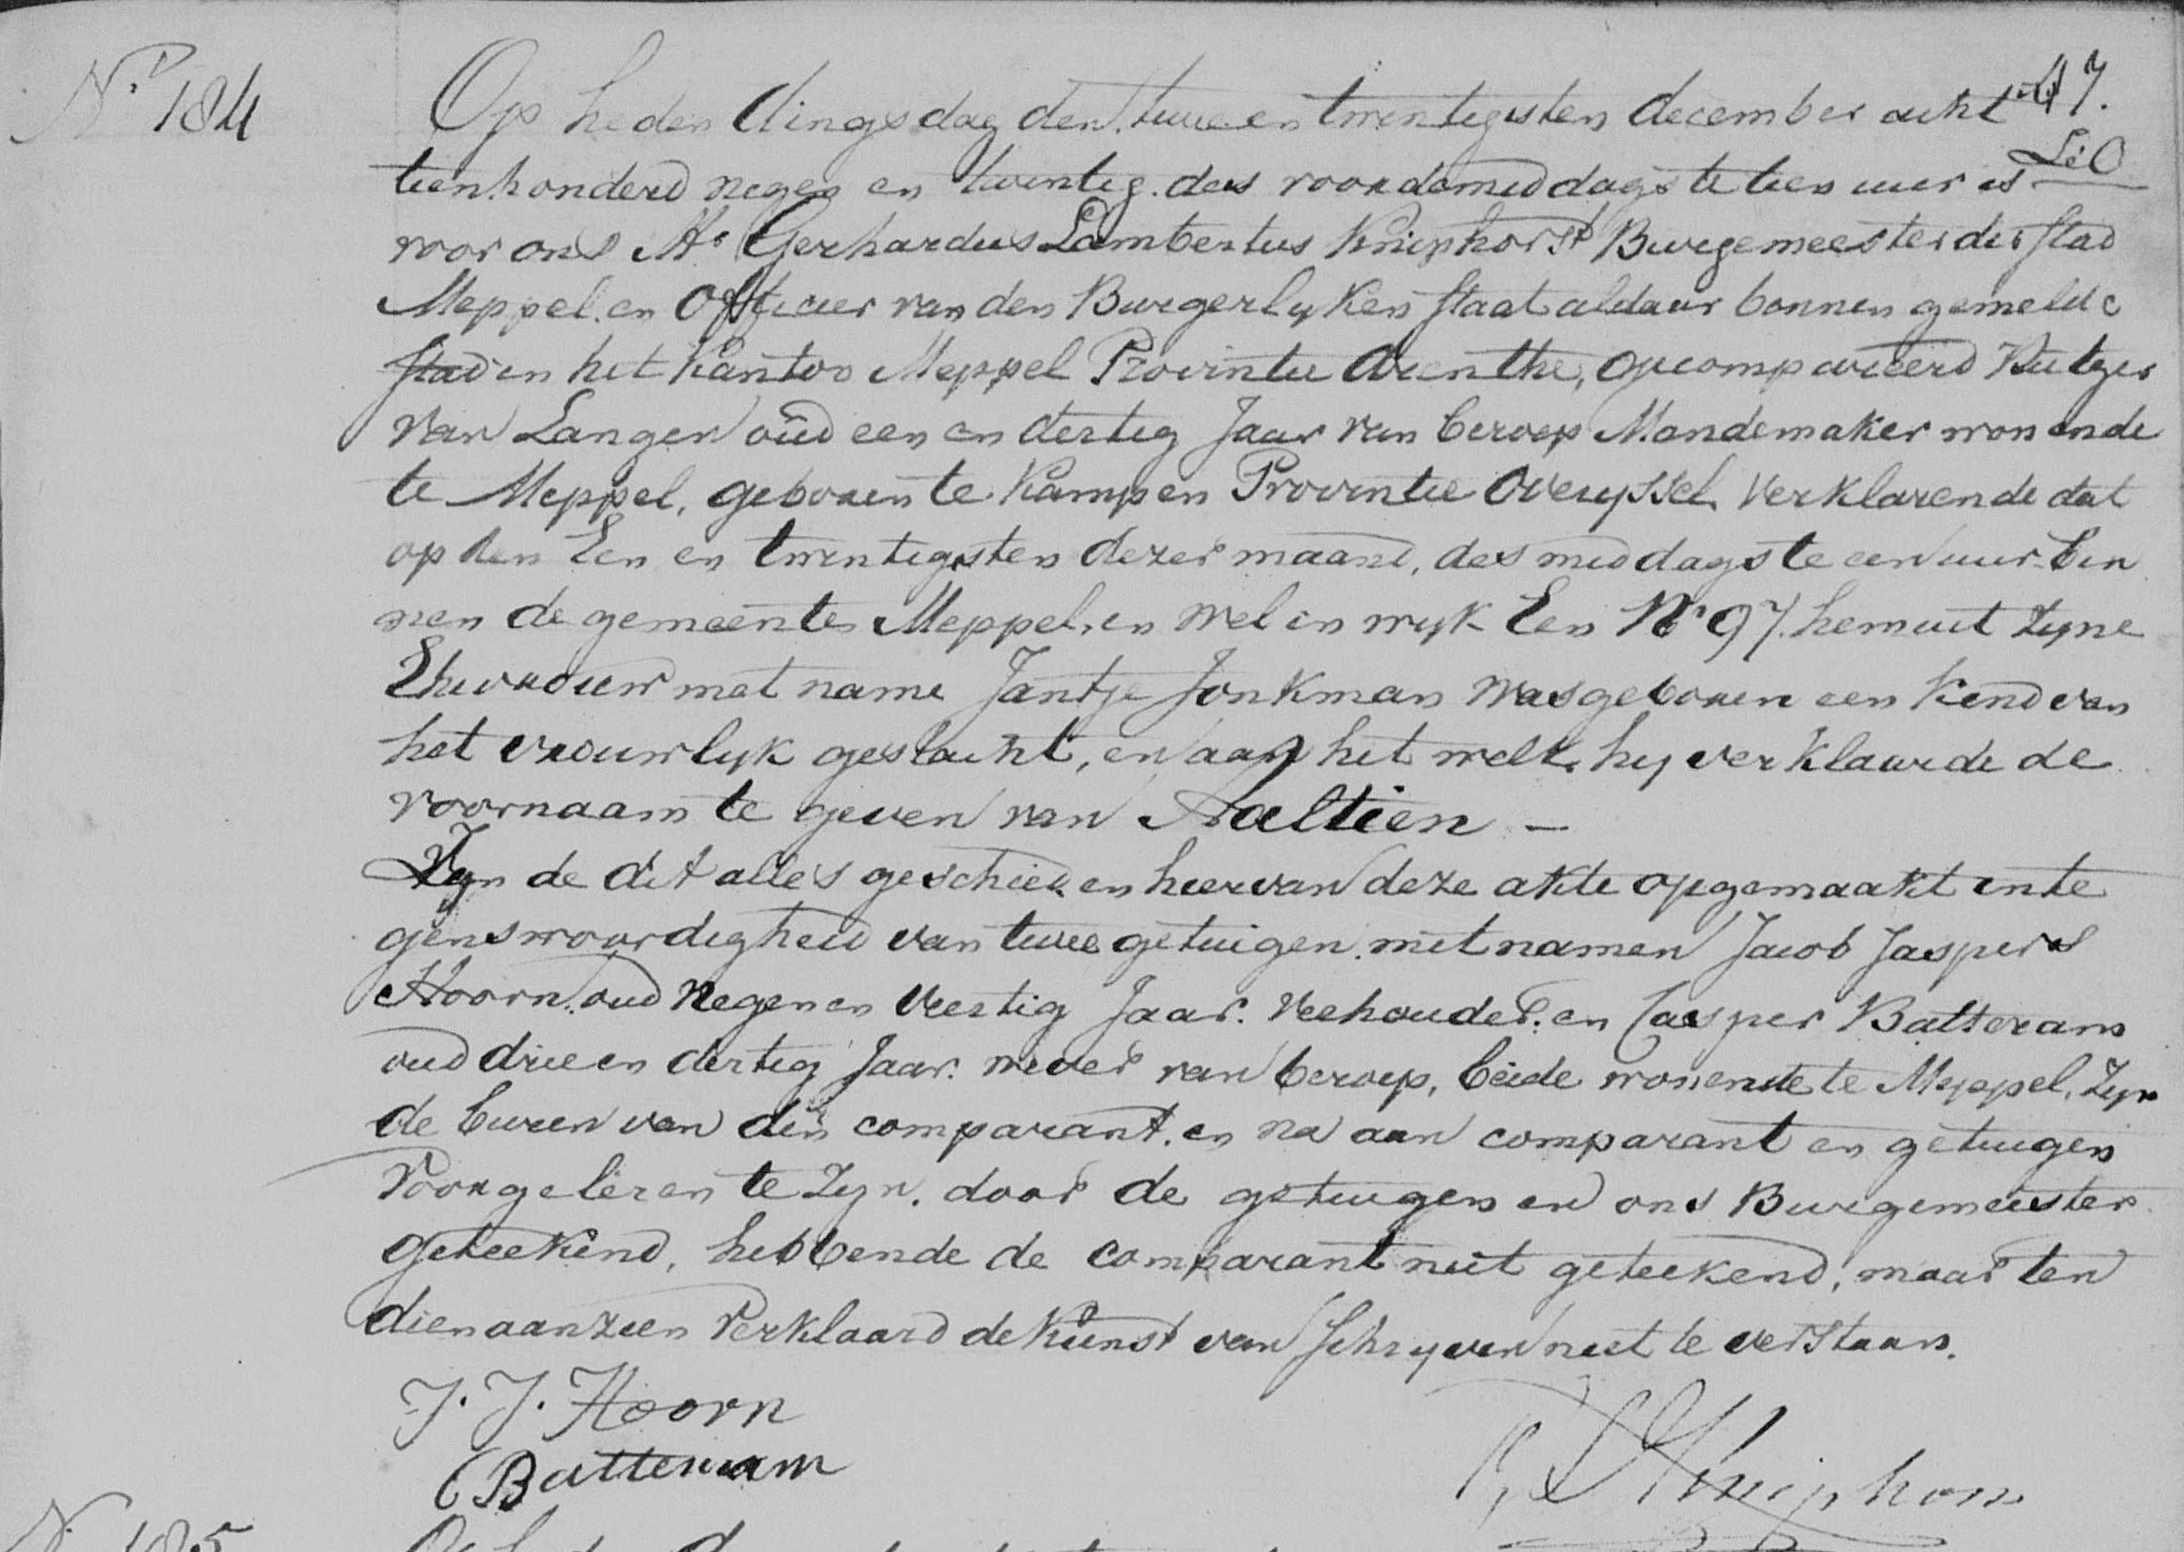 No 184
47.
Op heden dingsdag den twee en twintigsten december acht
tienhonderd negen en twintig des voordemiddags te tien uur is
voor ons Mr Gerhardus Lambertus Kniphorst Burgemeester der stad
Meppel en Officier van den Burgerlyken staat aldaar bonnen gemelde
stad in het Kantoo Meppel Provintie Drenthe, gecompareerd Rutger
van Langen oud een en dertig Jaar van beroep Mandemaker wonende
te Meppel, geboren te Kampen Provintie Overyssel Verklarende dat
op den Een en twintigsten dezer maand, des middags te een uur bin
nen de gemeente Meppel, en wel in wyk Een No 97. hem uit zyne
Ehevrouw met name Jantje Jonkman was geboren een kind van
het vrouwlyk geslacht, en aan het welk hy verklaarde de
voornaam te geven van Aaltien —
Zynde dit alles geschied en hiervan deze akte opgemaakt in te
genswoordigheid van twee getuigen met namen Jacob Jaspers
Hoorn oud Negen en Veertig Jaar. Veehouder. en Casper Batteram
oud drie en dertig Jaar. wever van beroep, beide wonende te Meppel, Zyn
de buren van den comparant. en na aan comparant en getuigen
Voorgelezen te Zyn. door de getuigen en ons Burgemeester
geteekend, hebbende de comparant niet geteekend, maar ten
dien aanzien Verklaard de Kunst van schryven niet te verstaan.
J. J. Hoorn
C Batteram
Kniphorst
N. 185